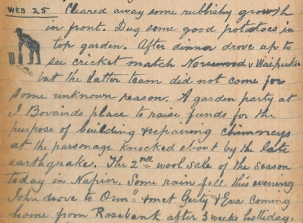 WED 25 Cleared away some rubbishy growth
in front. Dug some good potatoes in
top garden. After dinner drove up to
see cricket match Norsewood v Waipukur
but the latter team did not come for
some unknown reason. A garden party at
J Bovairds place to raise funds for the
purpose of building & repairing chimneys
at the parsonage knocked about by the late
earthquake. The 2nd wool sale of the season
today in Napier. Some rain fell this evening
John drove to Orm & met Gerty & Eva coming
home from Rosebank after 3 weeks holiday